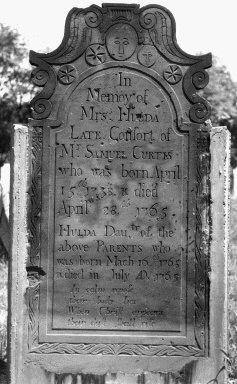 In
Memory of
Mrs. HULDA
LATE Consort of
Mr. SAMUEL CURTIS
who was born April
15th 1738 & died
April 28th 1765
HULDA Daur. of the
above PARENTS who
was born Mach 16th 1765
& died in July AD. 1765
In calm repose
When Christ